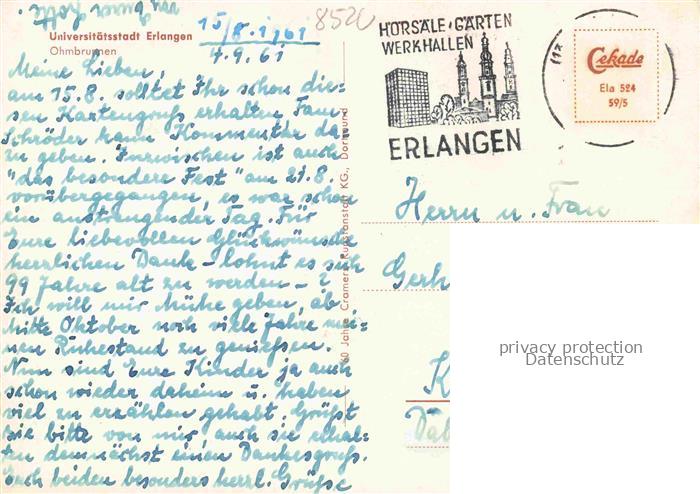 Universitätsstadt Erlangen
Ohmbrunnen
15/8.1961
4.9.61
Meine Lieben,
am 15.8. solltet Ihr schon die=
sen Kartengruß erhalten, Fam.
Schröder kann Kommentar da=
zu geben. Inzwischen ist auch
"das besondere Fest" am 27.8.
vorübergegangen, es war schon
ein anstrengender Tag. Für
Eure liebevollen Glückwünsche
herzlichen Dank – lohnt es sich
99 Jahre alt zu werden – ?
Ich will mir Mühe geben, ab
Mitte Oktober noch viele Jahre mei=
nen Ruhestand zu genießen.
Nun sind Eure Kinder ja auch
schon wieder daheim u. haben
viel zu erzählen gehabt. Grüßt
sie bitte von mir, auch sie erhal=
ten demnächst einen Dankesgruß.
Euch beiden besonders herzl. Grüße
60 Jahre Cramers Kunstanstalt KG., Dortmund
8520
HÖRSÄLE·GÄRTEN
WERKHALLEN
ERLANGEN
Cekade
Ela 524
59/5
Herrn u. Frau
Gerh
K
privacy protection
Datenschutz